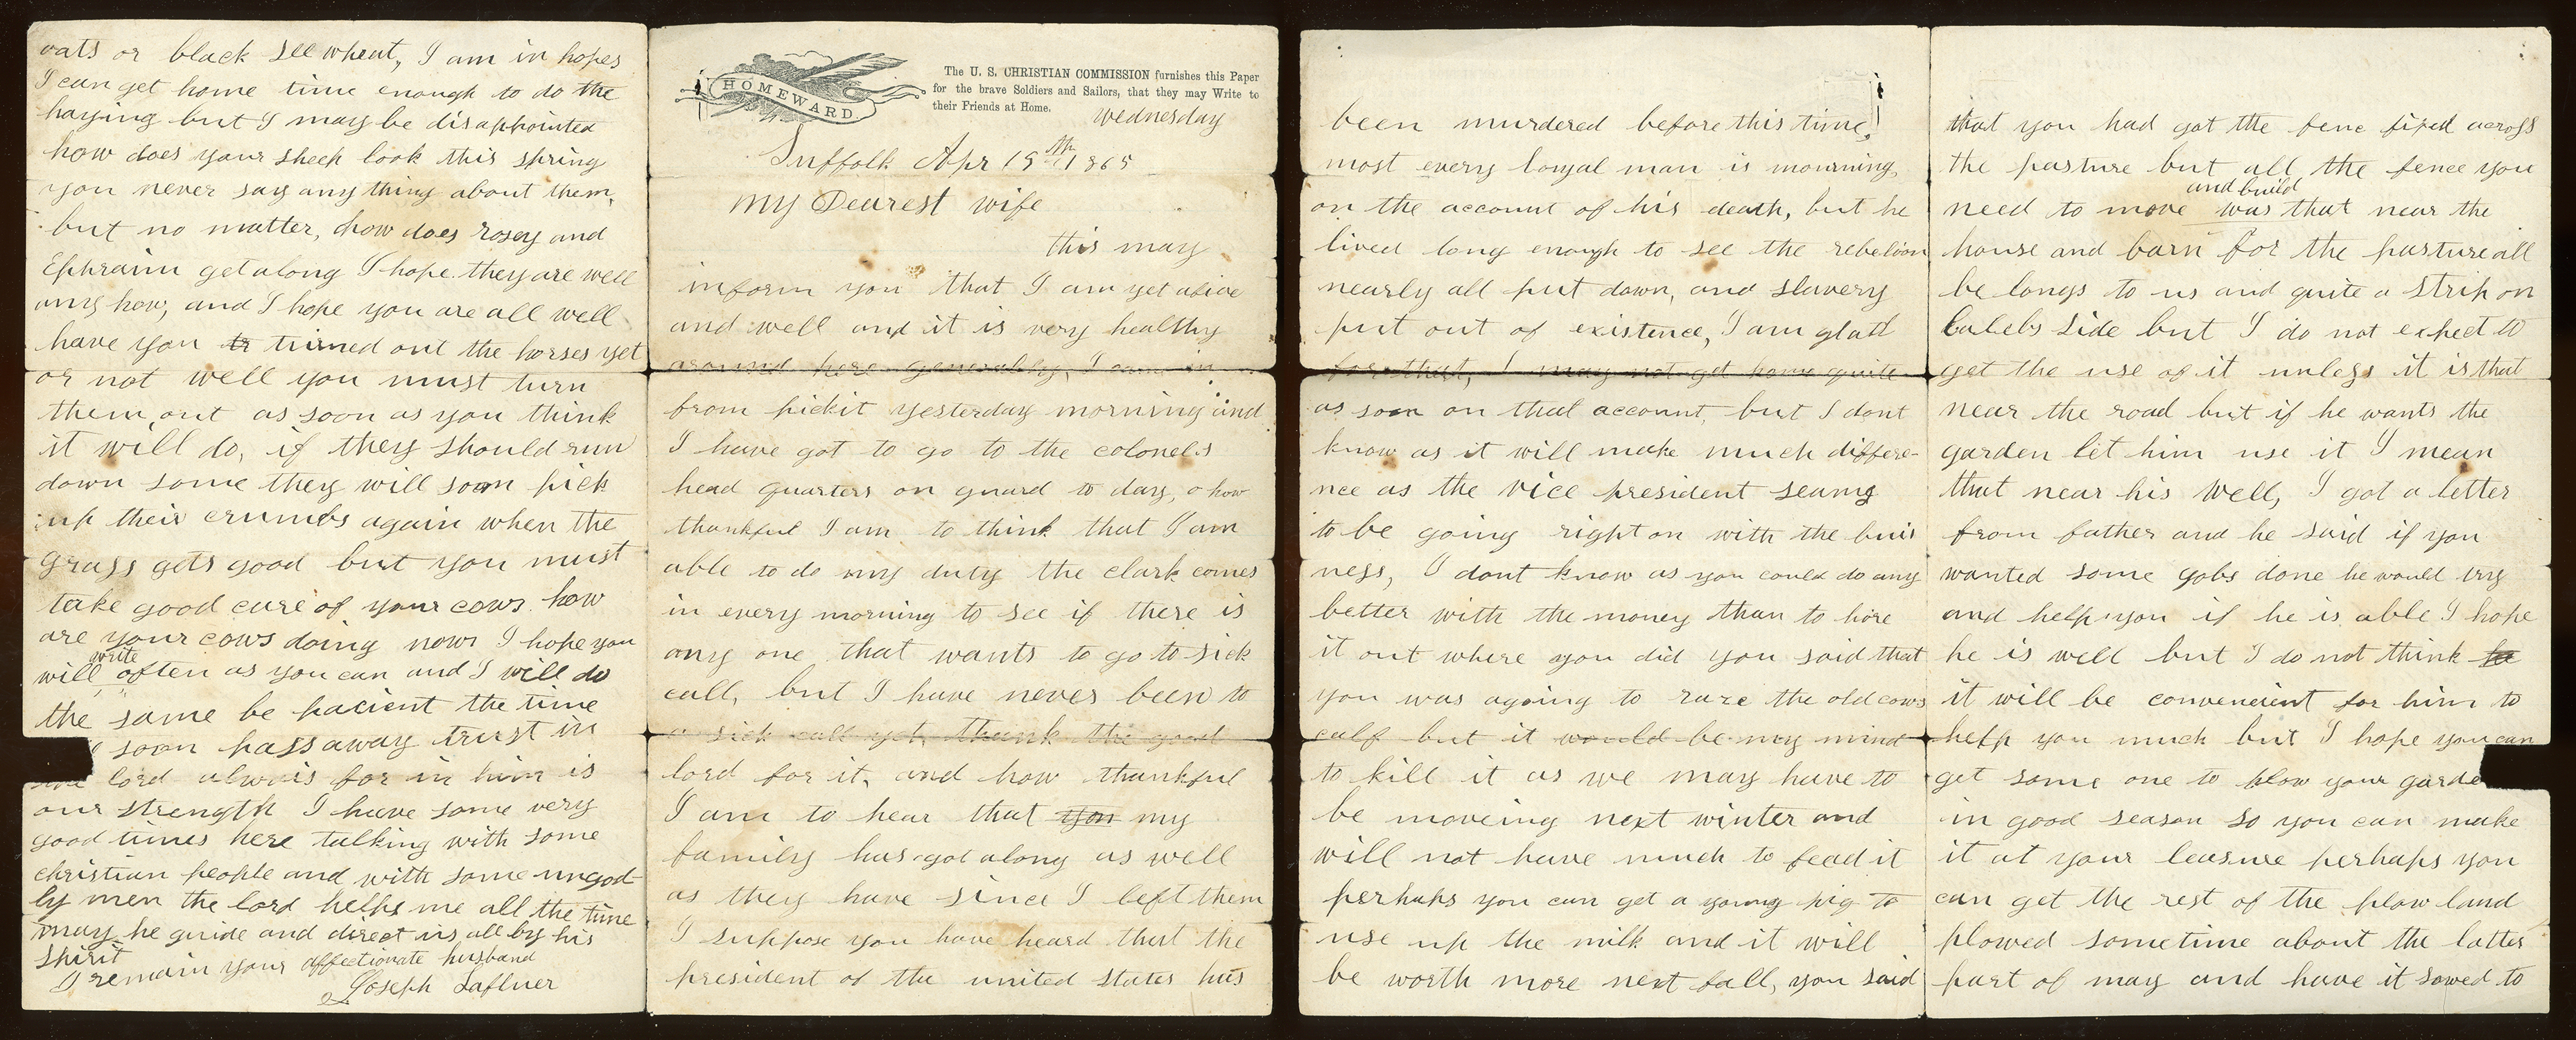 HOMEWARD
The U. S. CHRISTIAN COMMISSION furnishes this Paper
for the brave Soldiers and Sailors, that they may Write to
their Friends at Home.
Wednesday
Suffolk Apr 19th 1865
My Dearest wife
this may
inform you that I am yet alive
and well and it is very healthy
around here generally, I came in
from pickit yesterday morning and
I have got to go to the colonels
head quarters on guard to day, o how
thankful I am to think that I am
able to do my duty the clark comes
in every morning to see if there is
any one that wants to go to sick
call, but I have never been to
a sick call yet, thank the good
lord for it, and how thankful
I am to hear that you my
family has got along as well
as they have since I left them
I suppose you have heard that the
president of the united states has
been murdered before this time,
most every loyal man is mourning
on the account of his death, but he
lived long enough to see the rebelion
nearly all put down, and slavery
put out of existence, I am glad
for that, I may not get home quite
as soon on that account, but I dont
know as it will make much differe-
nce as the vice president seams
to be going right on with the buis
ness, I dont know as you could do any
better with the money than to hire
it out where you did you said that
you was agoing to raze the old cows
calf but it would be my mind
to kill it as we may have to
be moveing next winter and
will not have much to fead it
perhaps you can get a young pig to
use up the milk and it will
be worth more next fall, you said
that you had got the fenc fixed across
the pasture but all the fence you
need to move and build was that near the
house and barn for the pasture all
be longs to us and quite a strip on
Calebs side but I do not expect to
get the use of it unless it is that
near the road but if he wants the
garden let him use it I mean
that near his well, I got a letter
from father and he said if you
wanted some gobs done he would try
and help you if he is able I hope
he is well but I do not think
it will be conveneient for him to
help you much but I hope you can
get some one to plow your garde
in good season so you can make
it at your leasure perhaps you
can get the rest of the plow land
plowed sometime about the latter
part of may and have it sowed to
oats or black see wheat, I am in hopes
I can get home time enough to do the
haying but I may be disappointed
how does your sheep look this spring
you never say any thing about them,
but no matter, how does rosey and
Ephraim get along I hope they are well
any how, and I hope you are all well
have you tr turned out the horses yet
or not well you must turn
them out as soon as you think
it will do, if they should run
down some they will soon pick
up their crumbs again when the
grass gets good but you must
take good care of your cows how
are your cows doing now I hope you
will write often as you can and I will do
the same be pacient the time
soon pass away trust in
lord alwais for in him is
our strength I have some very
good times here talking with some
christian people and with some ungod
ly men the lord helps me all the time
may he guide and direct us all by his
spirit
I remain your affectionate husband
Joseph Laflner